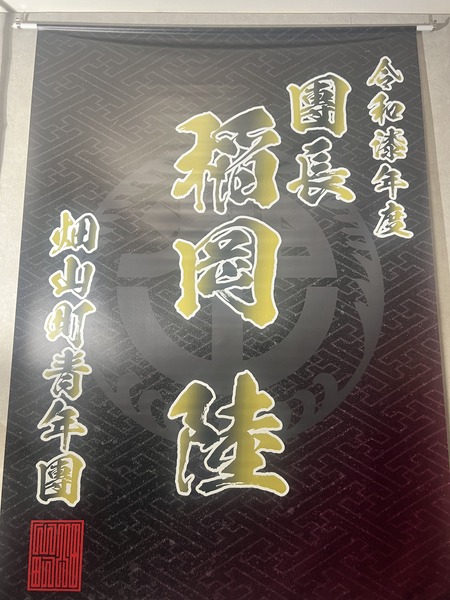 令和漆年度
團長
稲岡陸
畑山町青年團